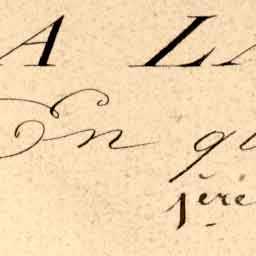 A LA
En qu
1ère